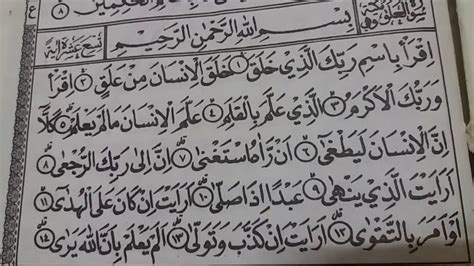 الحكمين ۝٨
سورة العلق مكية وهي
بِسْمِ اللّٰهِ الرَّحْمٰنِ الرَّحِيْمِ
تسع عشرة اية
اِقْرَاْ بِاسْمِ رَبِّكَ الَّذِيْ خَلَقَ ۝١ خَلَقَ الْاِنْسَانَ مِنْ عَلَقٍ ۝٢ اِقْرَاْ
وَرَبُّكَ الْاَكْرَمُ ۝٣ الَّذِيْ عَلَّمَ بِالْقَلَمِ ۝٤ عَلَّمَ الْاِنْسَانَ مَا لَمْ يَعْلَمْ ۝٥ كَلَّا
اِنَّ الْاِنْسَانَ لَيَطْغٰى ۝٦ اَنْ رَّاٰهُ اسْتَغْنٰى ۝٧ اِنَّ اِلٰى رَبِّكَ الرُّجْعٰى ۝٨
اَرَاَيْتَ الَّذِيْ يَنْهٰى ۝٩ عَبْدًا اِذَا صَلّٰى ۝١٠ اَرَاَيْتَ اِنْ كَانَ عَلَى الْهُدٰى ۝١١
اَوْ اَمَرَ بِالتَّقْوٰى ۝١٢ اَرَاَيْتَ اِنْ كَذَّبَ وَتَوَلّٰى ۝١٣ اَلَمْ يَعْلَمْ بِاَنَّ اللّٰهَ يَرٰى ۝١٤